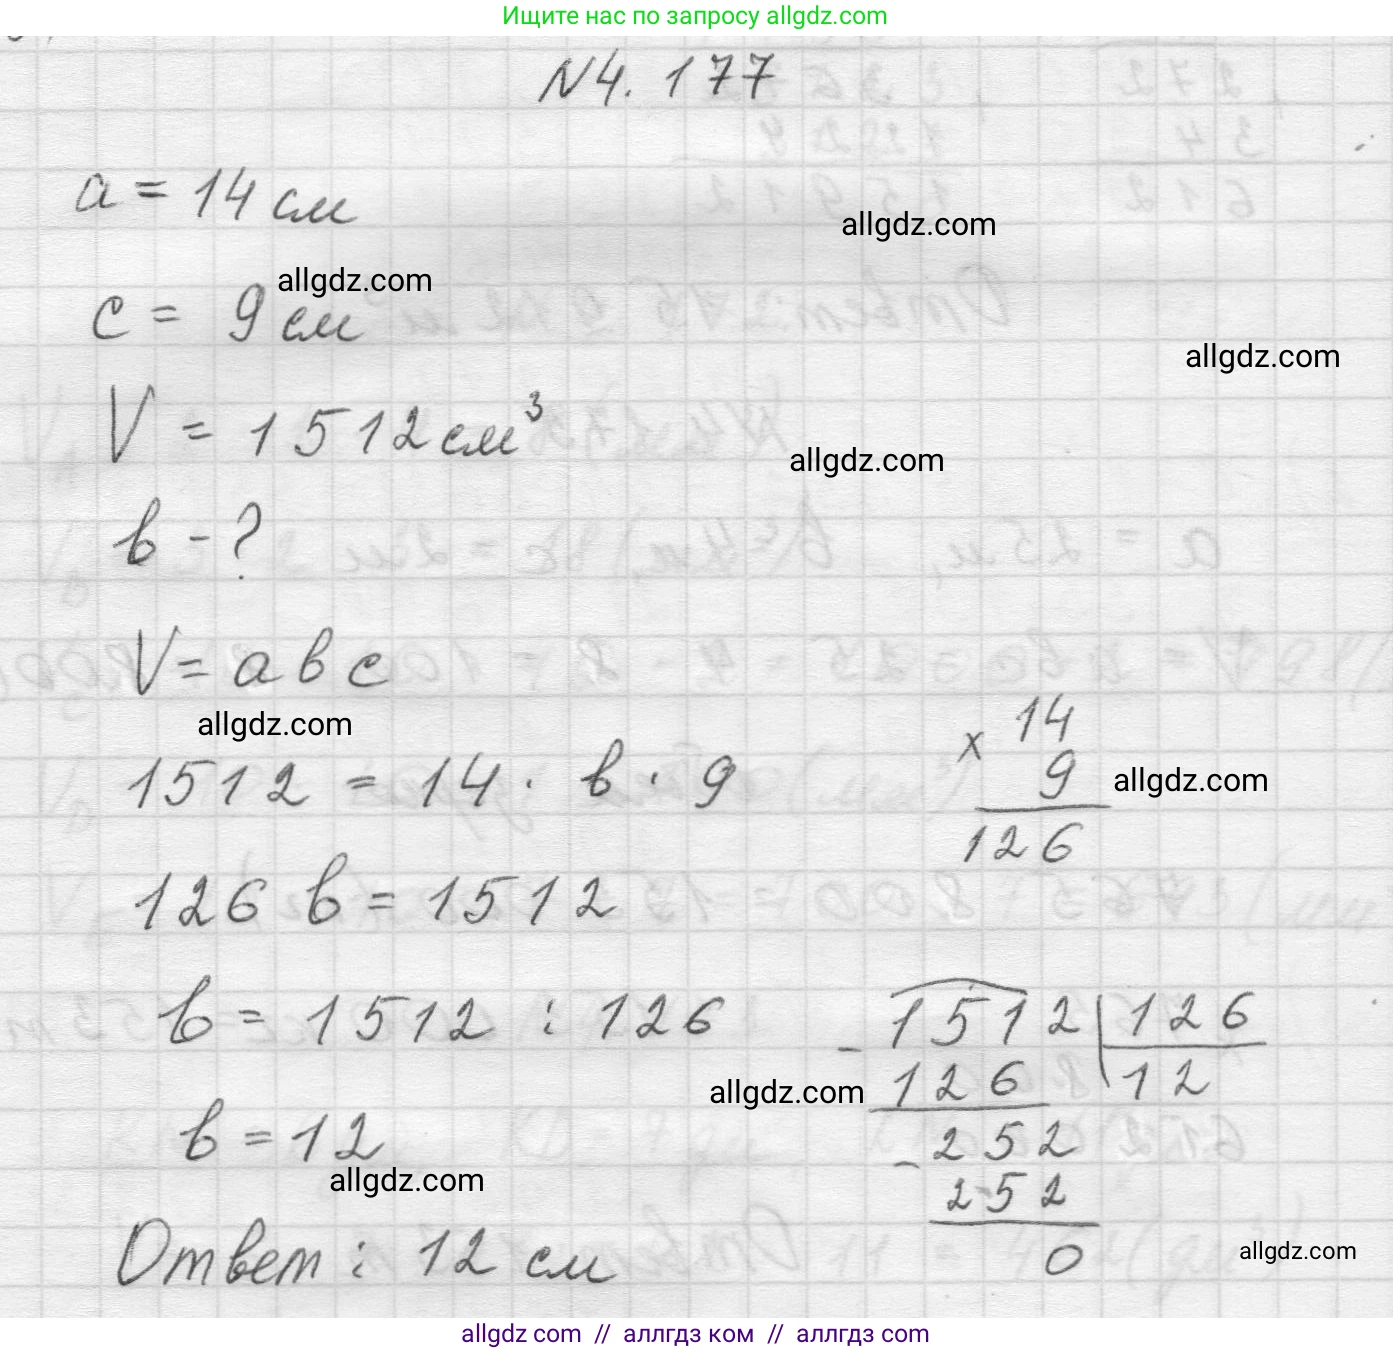 Ищите нас по запросу allgdz.com
N4.177
a = 14 см
allgdz.com
allgdz.com
c = 9 см
allgdz.com
V = 1512 см³
allgdz.com
b - ?
V = a b c
allgdz.com
1512 = 14 · b · 9
× 14
9
allgdz.com
126
126 b = 1512
b = 1512 : 126
- 1512 | 126
126 12
allgdz.com
- 252
252
0
b = 12
allgdz.com
Ответ : 12 см
allgdz.com
allgdz com // аллгдз ком // аллгдз.com